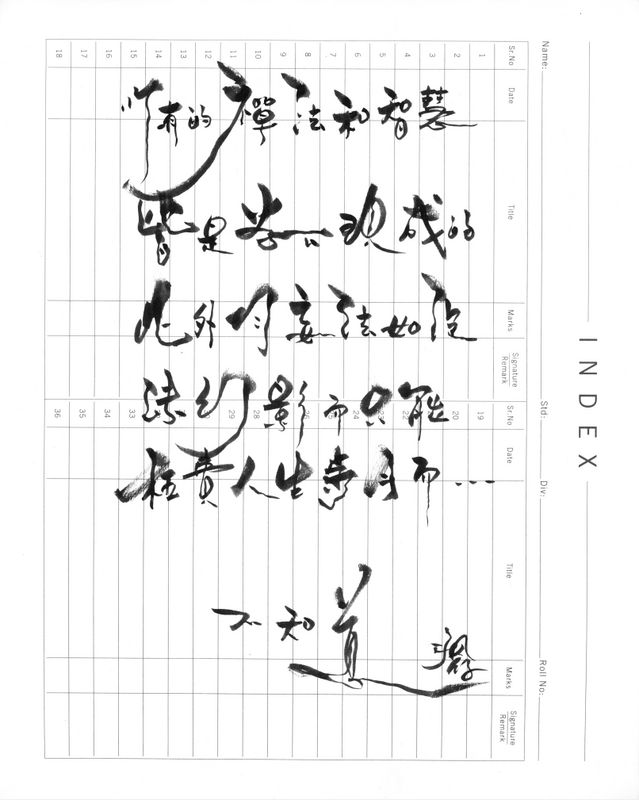 所有的禪法和智慧
皆是現成的
此外妄法如
幻影而只能
枉費人生月而...
不知道
INDEX
Name: Std: Div: Roll No:
Sr.No Date Title Marks Signature Remark Sr.No Date Title Marks Signature Remark
1 19
2 20
3
4 22
5 23
6 24
7
8
9
10 28
11 29
12
13
14
15 33
16 34
17 35
18 36